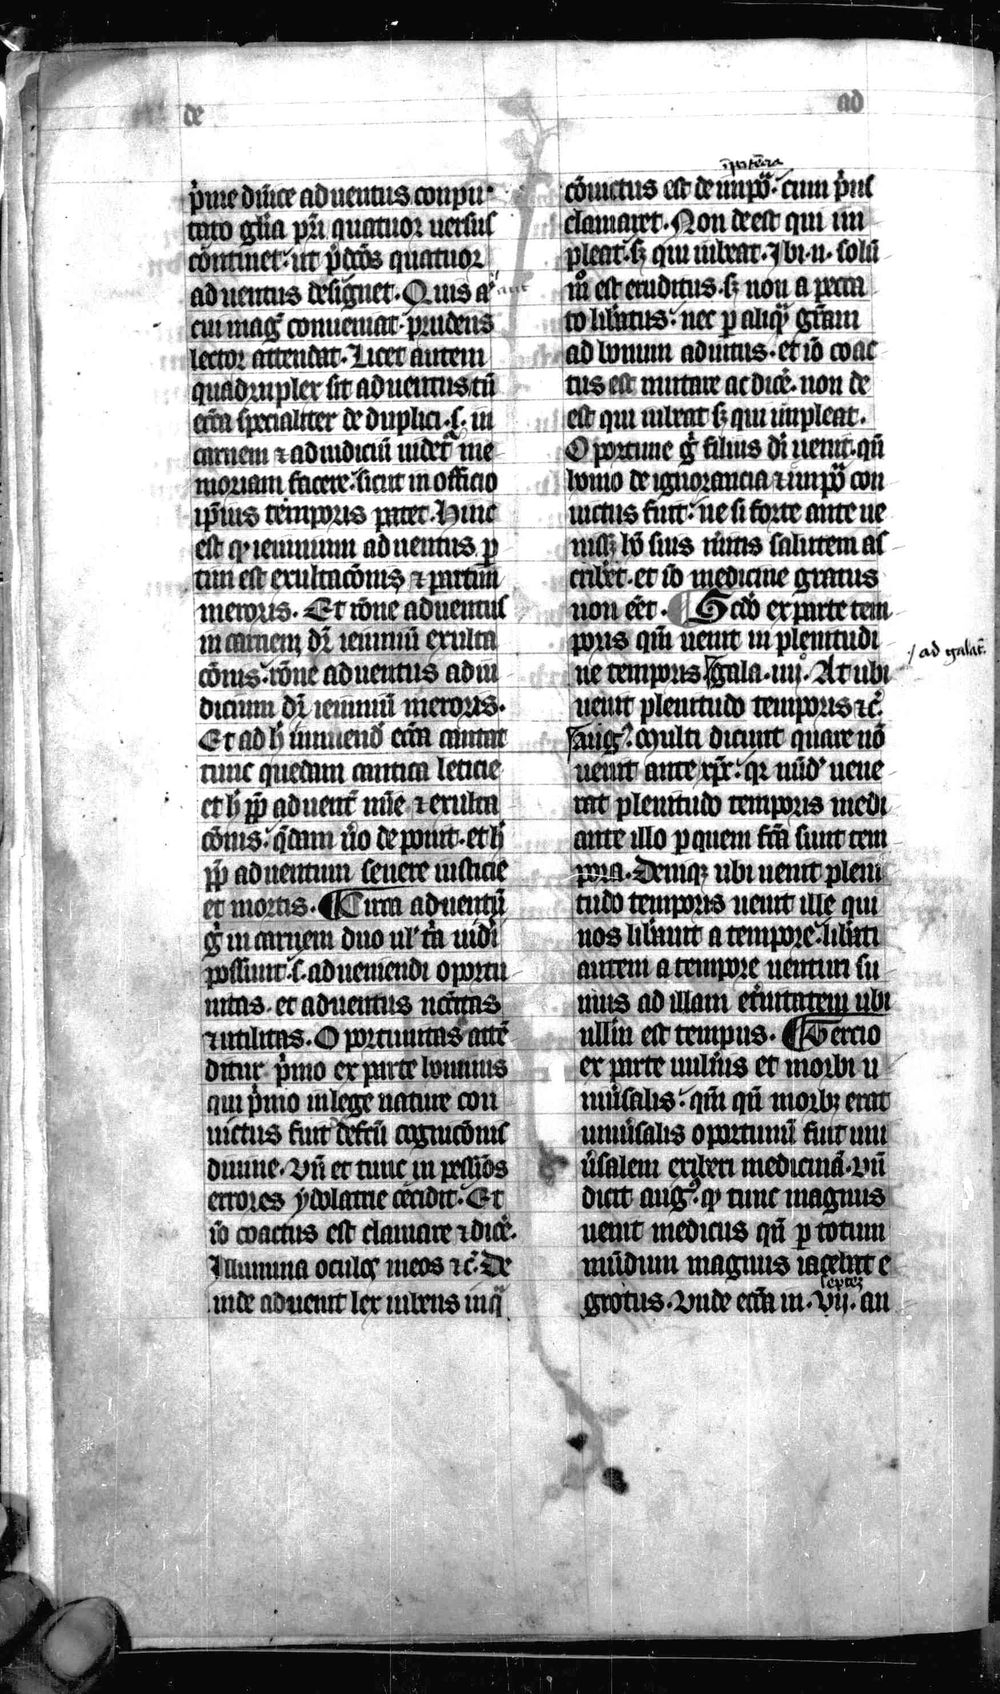 de
ad
p̍me dn̄ice aduentus conpu
tato gl̄ia pr̄i quatuor uersus
cōtinet. ut p̍dc̄os quatuor
aduentus designet. Quis aūt
cui maḡ conueniat. prudens
lector attendat. Licet autem
quadruplex sit aduentus tn̄
ecc̄a specialiter de duplici .s. in
carnem ⁊ ad iudiciū uidetᷣ me
moriam facere. sicut in officio
ip̄ius temporis patet. Hinc
est ꝙ ieiunium aduentus ꝑ
tim est exultacōnis ⁊ partim
meroris. Et rōne aduentus
in carnem dr̄ ieiuniū exulta
cōnis. rōne aduentus ad iu
dicium dr̄ ieiuniū meroris.
Et ad h̍ innuend̄ ecc̄a cantat
tunc quedam cantica leticie
et h̍ ꝓp̄ aduent̄ mīe ⁊ exulta
cōnis. q̄dam ūo deponit. et h̍
ꝓp̄ aduentum seuere iusticie
et mortis. ¶ Circa aduentū
g̍ in carnem duo ul' tr̄a uidi̍
possunt .s. adueniendi oportu
nitas. et aduentus nc̄citas
⁊ utilitas. Oportunitas attē
ditur p̍mo ex parte hominis
qui p̍mo in lege nature con
uictus fuit defc̄ū cognicōnis
diuine. Vn̄ et tunc in pessīos
errores ydolatrie cecidit. Et
iō coactus est clamare ⁊ dice̍.
Illumina oculos meos ⁊c̄. De
inde aduenit lex iubens in q̄
ip̄otēcia
cōuictus est de inpo̍. cum p̍us
clamaret. Non deest qui im
pleat. sꝫ qui iubeat. Ibi .n. solū
m̊ est eruditus. sꝫ non a pecca
to lib̍atus. nec ꝑ aliqᷓ grām
ad bonum adiutus. et iō coac
tus est mutare ac dice̍. non de
est qui iubeat sꝫ qui impleat.
Oportune g̍ filius di̍ uenit. qn̄
homo de ignorancia ⁊ inpo̍ con
uictus fuit. ne si forte ante ue
nissꝫ hō suis m̍itis salutem as
crib̍et. et iō medicine gratus
non eēt. ¶ Scd̄o ex parte tem
poris qm̄ uenit in plenitudi
ne temporis. gala. iiij. At ubi
/ ad galat̄.
uenit plenitudo temporis ⁊c̄.
aug᷒. Multi dicunt quare nō
uenit ante xp̄c. qꝛ nūd' uene
rat plenitudo temporis medi
ante illo ꝑ quem fc̄a sunt tem
pora. Deniqꝫ ubi uenit pleni
tudo temporis uenit ille qui
nos lib̍auit a tempore. lib̍ati
autem a tempore uenturi su
mus ad illam et̍nitatem ubi
ullm̄ est tempus. ¶ Tercio
ex parte uuln̍is et morbi u
niu̍salis. qm̄ qn̄ morbꝫ erat
uniu̍salis oportunū fuit uni
u̍salem exiberi medicinā. Vn̄
dicit aug᷒. ꝙ tunc magnus
uenit medicus qn̄ ꝑ totum
mūdum magnus iacebat e
septeꝫ
grotus. Vnde ecc̄a in .vij. an